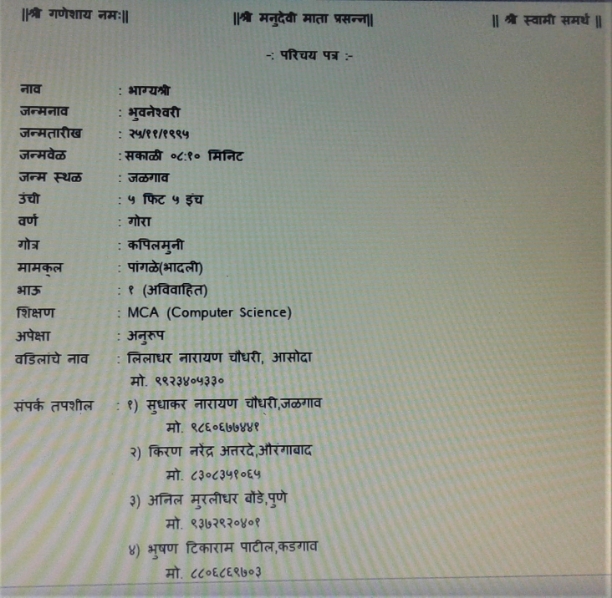 ||श्री गणेशाय नमः|| ||श्री मनुदेवी माता प्रसन्न|| || श्री स्वामी समर्थ ||
-: परिचय पत्र :-
नाव : भाग्यश्री
जन्मनाव : भुवनेश्वरी
जन्मतारीख : २५/११/१९९५
जन्मवेळ : सकाळी ०८:१० मिनिट
जन्म स्थळ : जळगाव
उंची : ५ फिट ५ इंच
वर्ण : गोरा
गोत्र : कपिलमुनी
मामकूल : पांगळे(भादली)
भाऊ : १ (अविवाहित)
शिक्षण : MCA (Computer Science)
अपेक्षा : अनुरूप
वडिलांचे नाव : लिलाधर नारायण चौधरी, आसोदा
मो. ९९२३४०५३३०
संपर्क तपशील : १) सुधाकर नारायण चौधरी,जळगाव
मो. ९८६०६७७४४१
२) किरण नरेंद्र अत्तरदे,औरंगाबाद
मो. ८३०८३५१०६५
३) अनिल मुरलीधर बोंडे,पुणे
मो. ९३७२९२०४०१
४) भुषण टिकाराम पाटील,कडगाव
मो. ८८०६८६९७०३